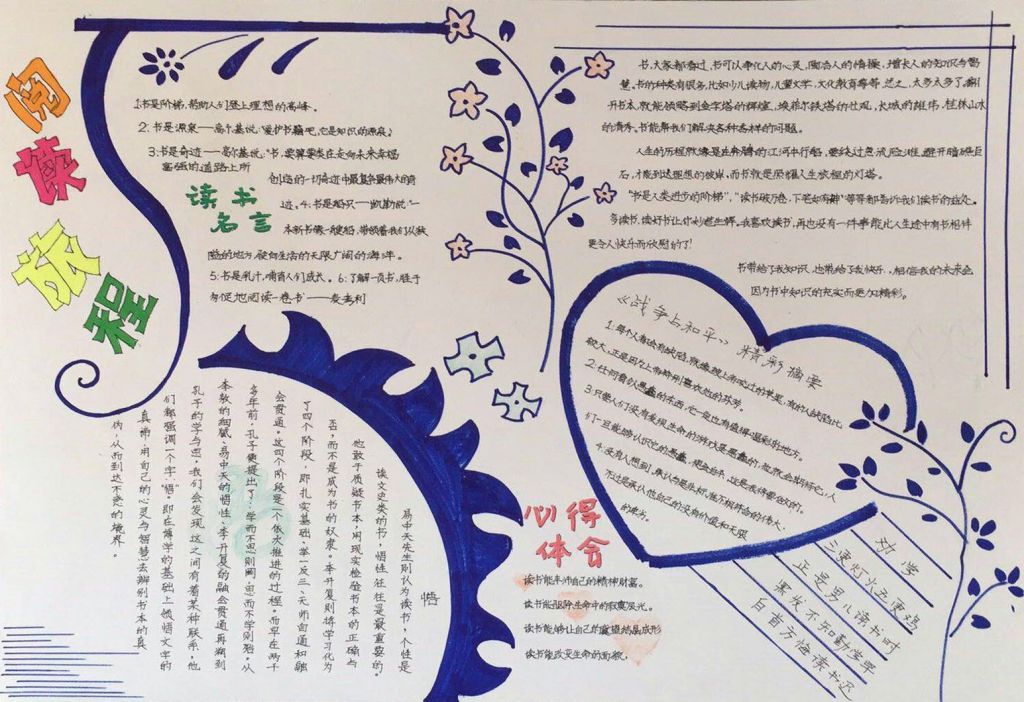 阅读旅程
1:书是阶梯,帮助人们登上理想的高峰。
2:书是源泉——高尔基说:“爱护书籍吧,它是知识的源泉。”
3:书是奇迹——高尔基说:“书,要算人类在走向未来幸福
富强的道路上所
创造的一切奇迹中最复杂最伟大的奇
迹。4:书是船只——凯勒说:“一
读书
名言
本新书像一艘船,带领着我们从狭
隘的地方,驶向生活的无限广阔的海洋。
5:书是乳汁,哺育人们成长。6:了解一页书,胜于
匆促地阅读一卷书——麦考利
书,大家都看过,书可以净化人的心灵,陶冶人的情操,增长人的知识与智
慧。书的种类有很多,比如少儿读物,儿童文学,文化教育等等,总之,太多太多了。翻
开书本,就能领略到金字塔的辉煌,埃菲尔铁塔的壮观,长城的雄伟,桂林山水
的清秀。书能帮我们解决各种各样的问题。
人生的历程就像是在奔腾的江河中行船,要经过急流险滩,避开暗礁巨
石,才能到达理想的彼岸。而书就是照耀人生旅程的灯塔。
“书是人类进步的阶梯”,“读书破万卷,下笔如有神”等等都告诉我们读书的益处。
多读书,读好书让你利益生辉。我喜欢读书,再也没有一件事能比人生途中有书相伴
更令人快乐而欣慰的了!
书带给了我知识,也带给了我快乐,相信我的未来会
因为书中知识的充实而更加精彩。
《战争与和平》精彩摘要
1:每个人都会有缺陷,就像被上帝咬过的苹果,有的人缺陷比
较大,正是因为上帝特别喜欢他的芬芳。
3:只要人们没有发现生命的
4:没有人想到,承认
不过是承认他自己的没有价值和无限
的卑劣。
悟
易中天先生则认为读书,个性是
读文史类的书,悟性往往是最重要的。
他敢于质疑书本,用现实检验书本的正确与
否,而不是成为书的奴隶。李开复则将学习化为
了四个阶段,即扎实基础、举一反三、无师自通和融
会贯通。这四个阶段是一个依次推进的过程。而早在两千
多年前,孔子便提出了:学而不思则罔,思而不学则殆。从
李敖的细腻、易中天的悟性、李开复的融会贯通再溯到
孔子的学与思,我们会发现,这之间有着某种联系,他
们都强调一个字:“悟”,即在博学的基础上领悟文字的
真谛,用自己的心灵与智慧去辨别书本的真
伪,从而到达不惑的境界。
心得
体会
读书能丰沛自己的精神财富。
读书能驱除生命中的寂寞发光。
读书能够让自己的愿望结晶成形
读书能改变生命的面貌。
劝学
三更灯火五更鸡
正是男儿读书时
黑发不知勤学早
白首方悔读书迟